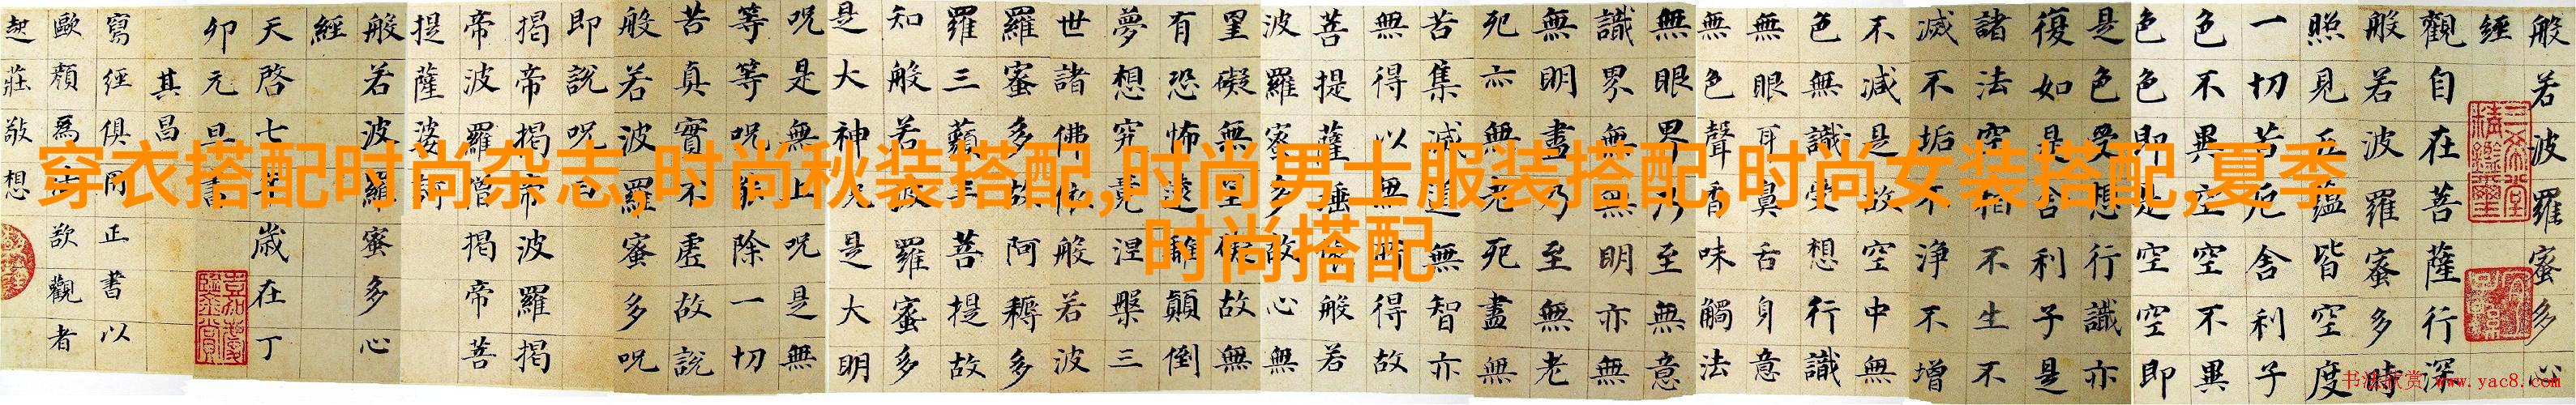 穿衣搭配时尚杂志,时尚秋装搭配,时尚男士服装搭配,时尚女装搭配,夏季
时尚搭配
般若波羅蜜多心
經
觀自在菩薩行深
般若波羅蜜多時
照見五蘊皆空度
一切苦厄舍利子
色不異空空不異
色色即是空空即
是色受想行識亦
復如是舍利子是
諸法空相不生不
滅不垢不淨不增
不減是故空中無
色無識受想行識
無眼耳鼻舌身意
無色聲香味觸法
無眼界乃至無意
識界無無明亦無
無明盡乃至無老
死亦無老死盡無
苦集滅道無智亦
無得以無所得故
菩提薩埵依般若
波羅蜜多故心無
罣礙無罣礙故無
有恐怖遠離顛倒
夢想究竟涅槃三
世諸佛依般若波
羅蜜多故阿耨多
羅三藐三菩提故
知般若波羅蜜多
是大神咒是大明
咒是無上咒是無
等等咒能除一切
苦真實不虛故說
般若波羅蜜多咒
即說咒曰
揭帝揭帝波羅揭
帝波羅僧揭帝菩
提薩婆訶
般若波羅蜜多心
經
天啓七年歲在丁
卯元旦書
其昌
寫經俱用正書以
歐顏爲法欲觀者
起莊敬想
三希堂精鑑璽
宜子孫
书法欣赏 www.yac8.com